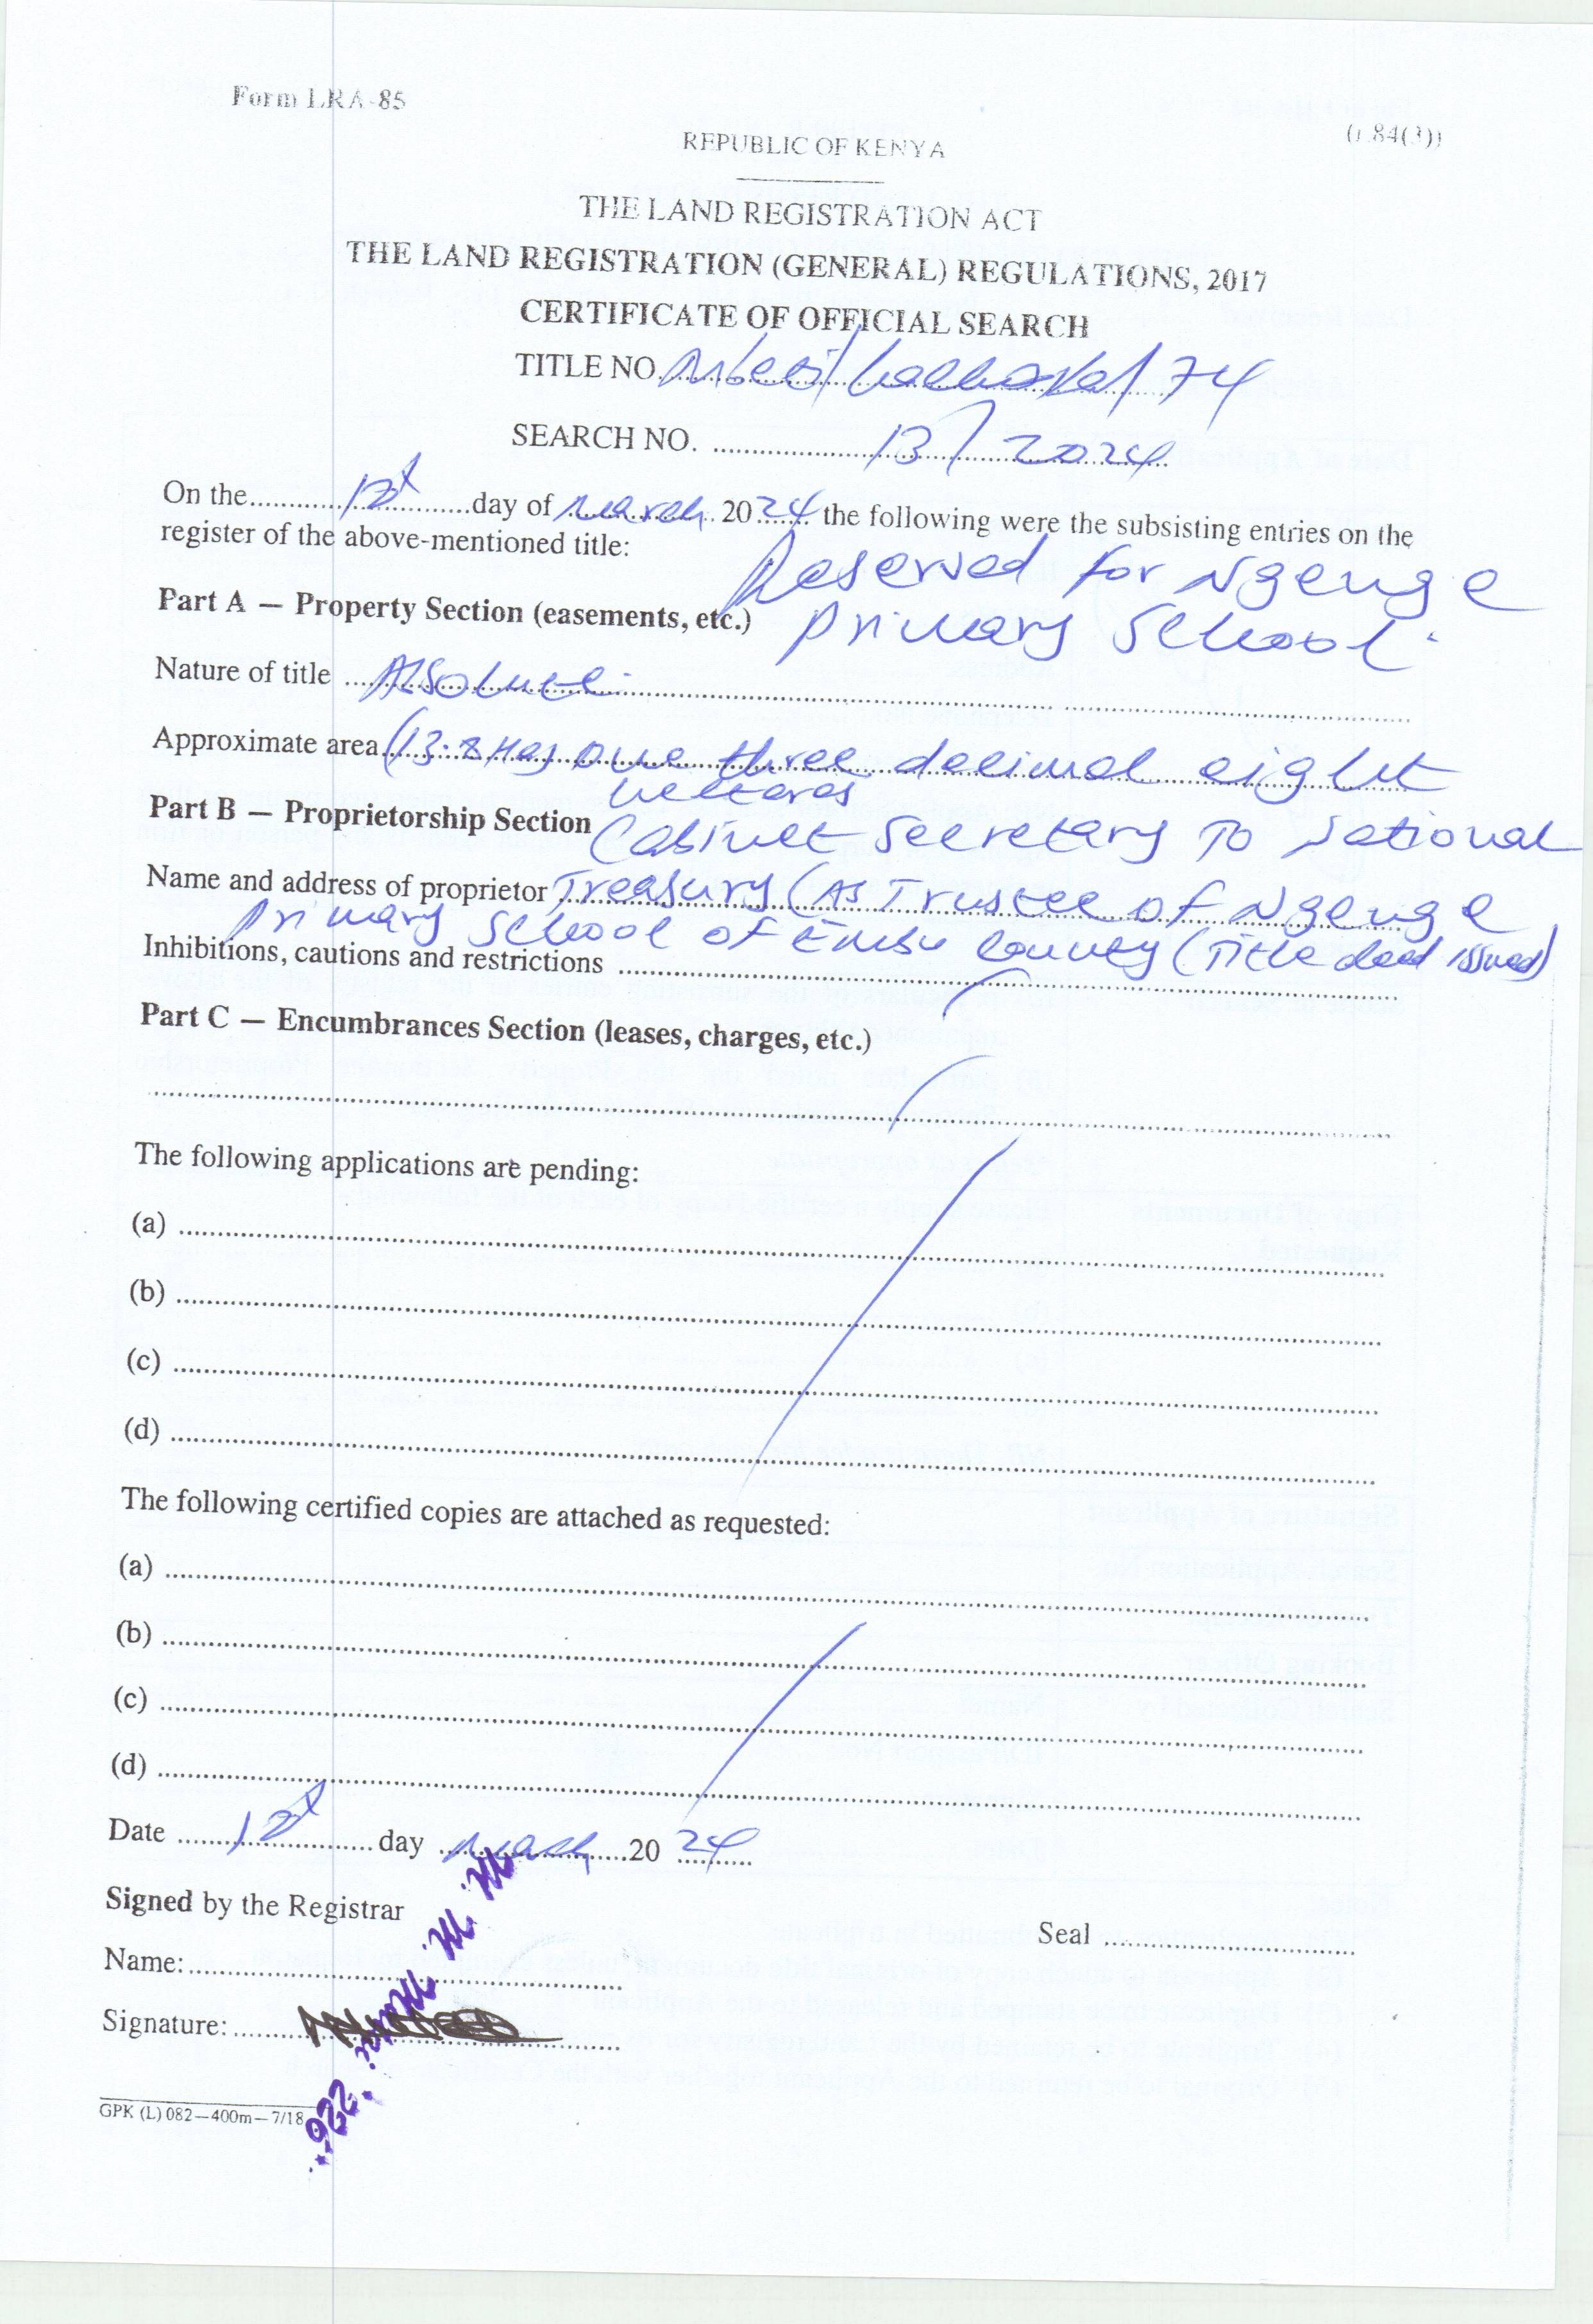 Form LRA-85
(r 84(3))
REPUBLIC OF KENYA
THE LAND REGISTRATION ACT
THE LAND REGISTRATION (GENERAL) REGULATIONS, 2017
CERTIFICATE OF OFFICIAL SEARCH
TITLE NO. / 74
SEARCH NO. 13/2024
On the 1st day of March 2024 the following were the subsisting entries on the
register of the above-mentioned title:
Reserved for Ngenge
Part A — Property Section (easements, etc.) Primary School.
Nature of title Absolute
Approximate area (13.8 Ha) One three decimal eight
hectares
Part B — Proprietorship Section Cabinet Secretary To National
Name and address of proprietor Treasury (As Trustee of Ngenge
Primary School of Embu County (Title deed issued)
Inhibitions, cautions and restrictions
Part C — Encumbrances Section (leases, charges, etc.)
The following applications are pending:
(a)
(b)
(c)
(d)
The following certified copies are attached as requested:
(a)
(b)
(c)
(d)
Date 1st day March 2024
Signed by the Registrar
Seal
Name:
Signature:
GPK (L) 082—400m—7/18